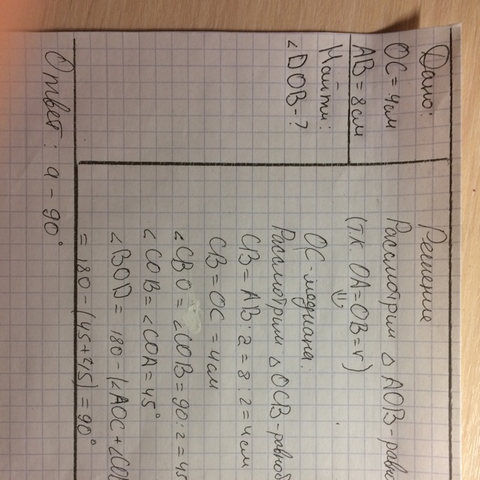 Дано:
ОС = 4см
АВ = 8см
Найти:
∠DOB - ?
Решение
Рассмотрим △ АОВ - равно
(т.к. ОА = ОВ = r)
ОС - медиана.
Рассмотрим △ ОСВ - равноб
СВ = АВ : 2 = 8 : 2 = 4см
СВ = ОС = 4см
∠CBO = ∠COB = 90 : 2 = 45
∠COB = ∠COA = 45°
∠BOD = 180 - (∠AOC + ∠CO
= 180 - (45 + 45) = 90°
Ответ: а - 90°